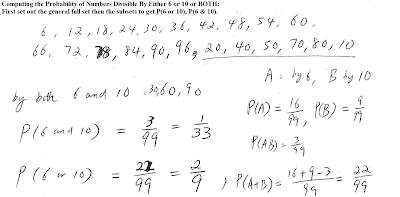 Computing the Probability of Numbers Divisible By Either 6 or 10 or BOTH:
First set out the general full set then the subsets to get P(6 or 10), P(6 & 10).
6, 12, 18, 24, 30, 36, 42, 48, 54, 60,
66, 72, 78, 84, 90, 96, 20, 40, 50, 70, 80, 10
A: by 6, B by 10
by both 6 and 10 : 30, 60, 90
P(A) = 16/99, P(B) = 9/99
P(6 and 10) = 3/99 = 1/33
P(AB) = 3/99
P(6 or 10) = 22/99 = 2/9 ; P(A+B) = 16+9-3/99 = 22/99